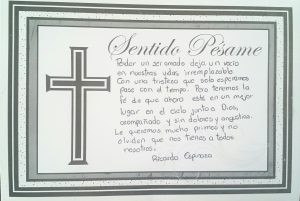 Sentido Pésame
Perder un ser amado deja un vacío
en nuestras vidas irremplazable
Con una tristeza que solo esperamos
pase con el tiempo. Pero tenemos la
fé de que ahora está en un mejor
lugar en el cielo junto a Dios,
acompañado y sin dolores y angustias.
Le queremos mucho primos y no
olviden que nos tienen a todos
nosotros.
Ricardo Espinoza